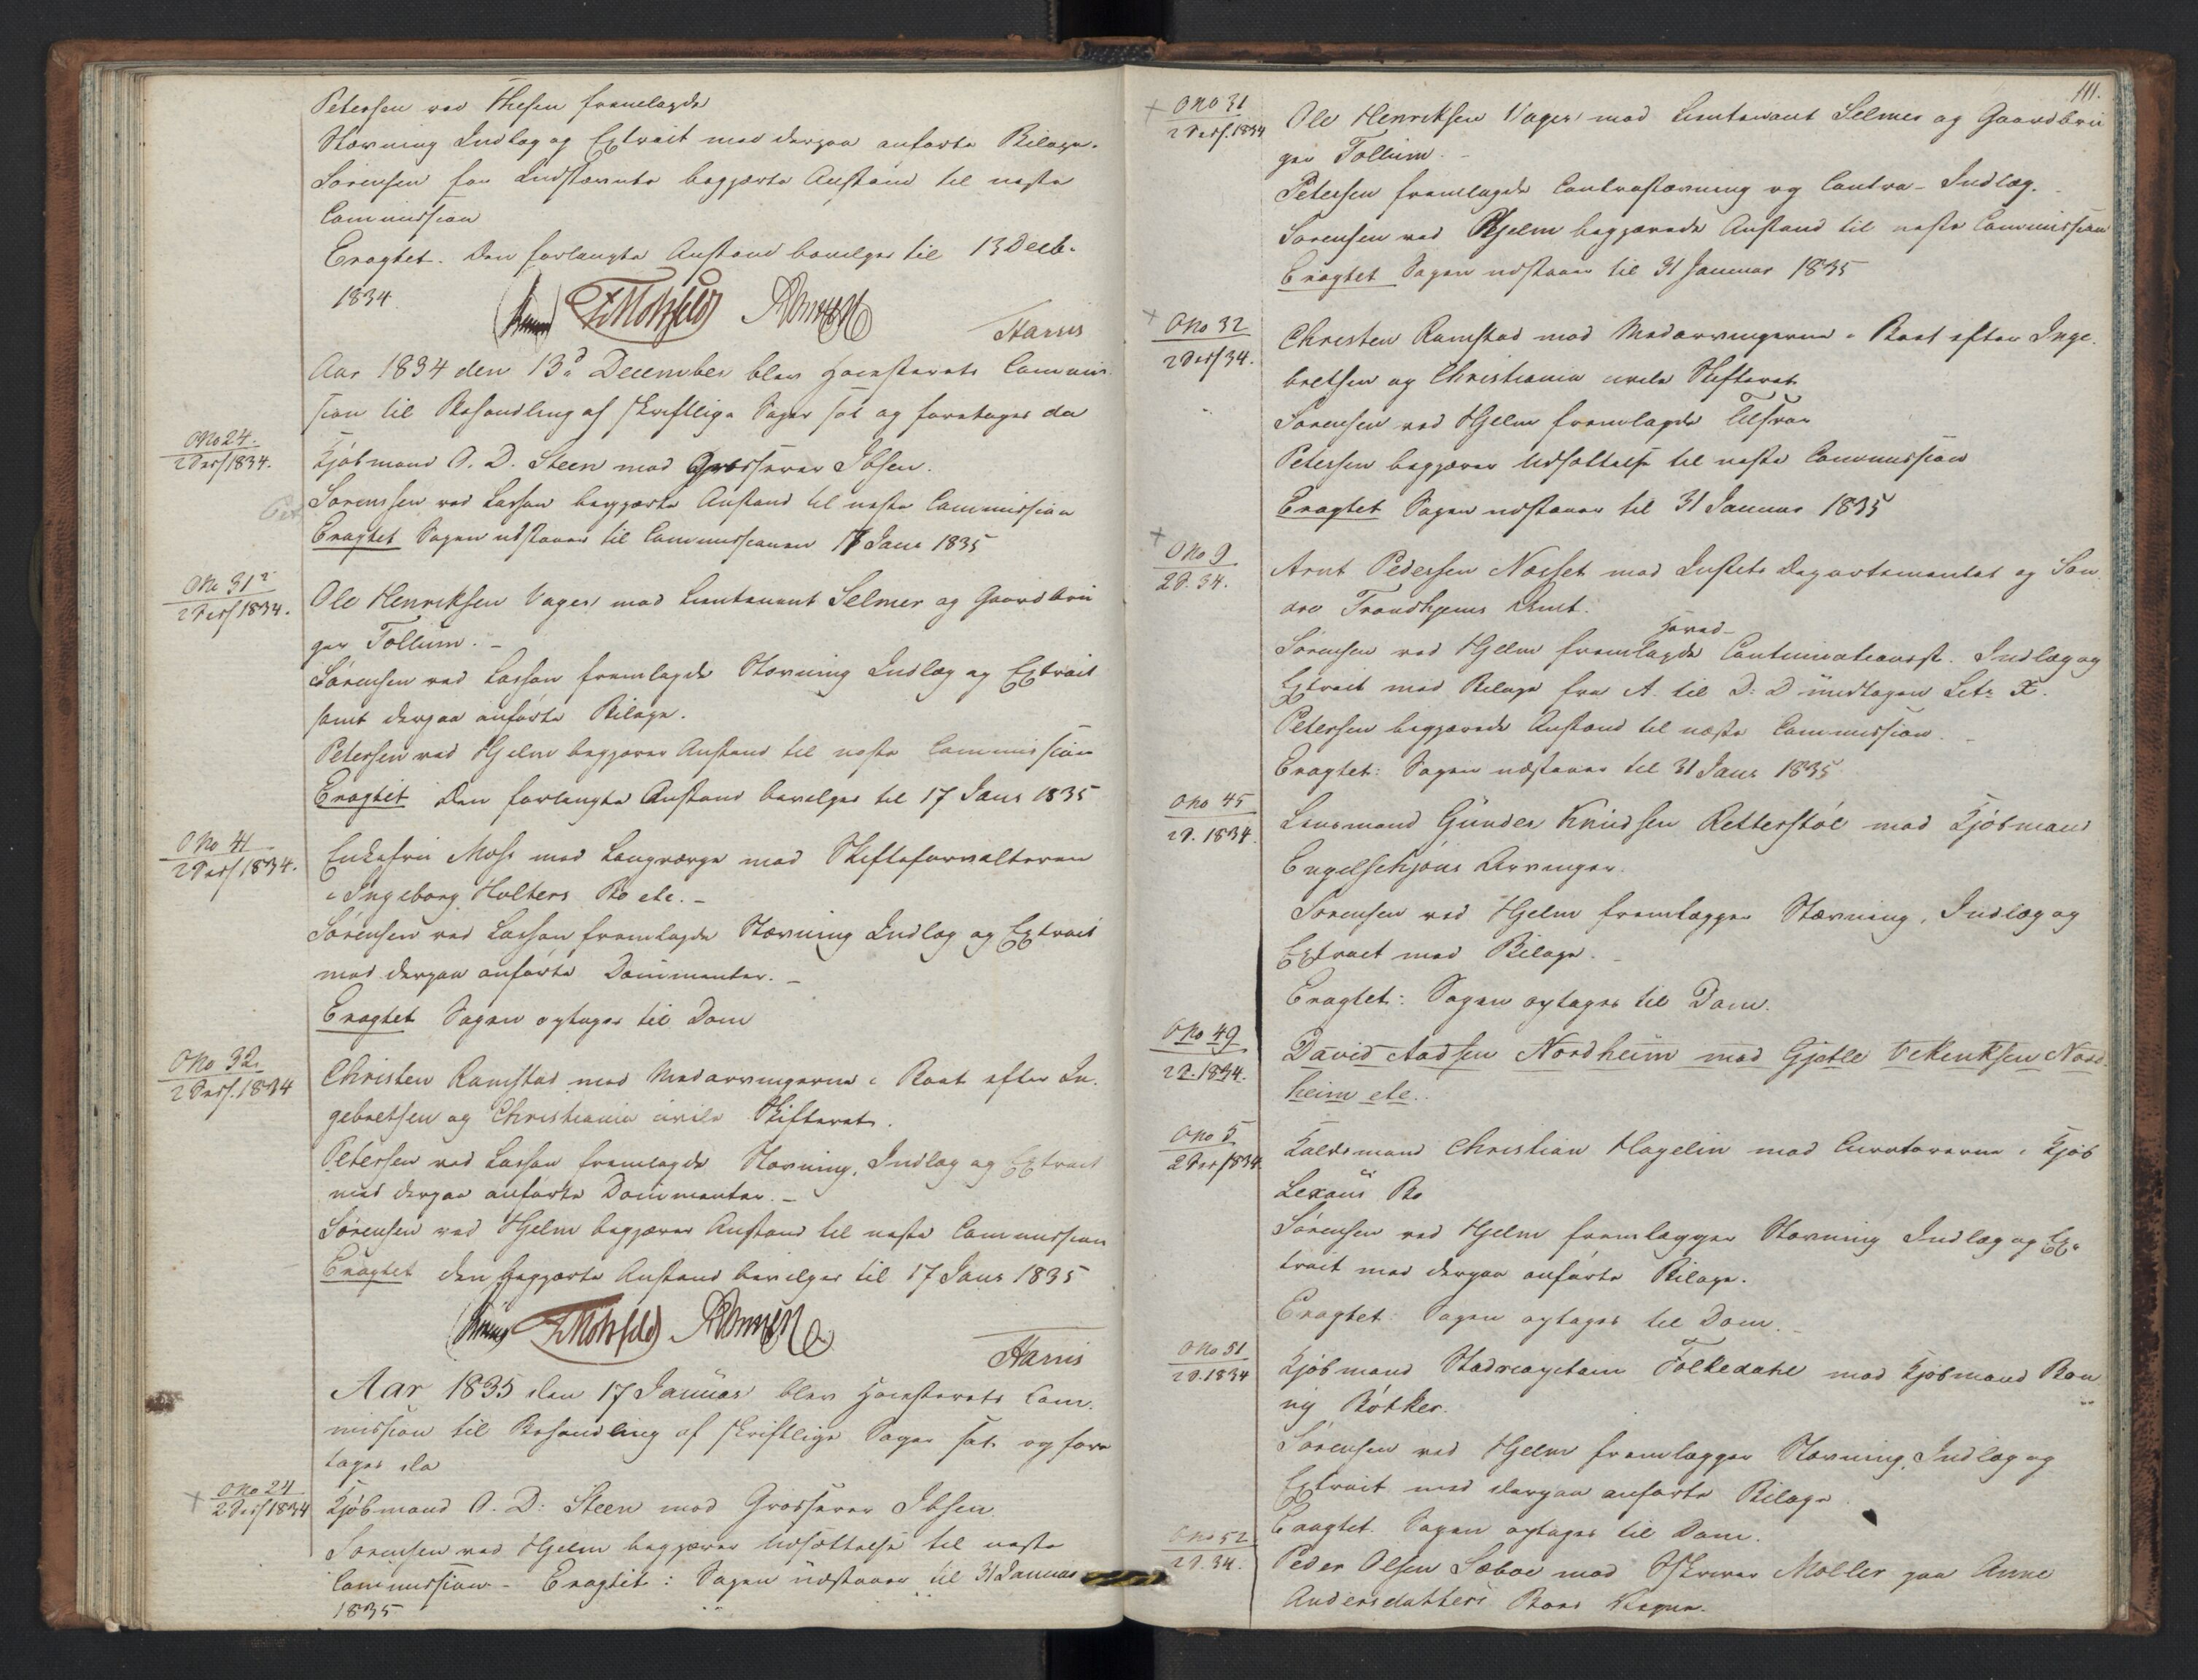 Petersen ved Thesen fremlagde
Stævning Indlæg og Extract med derpaa anførte Bilage.
Sørensen for Indstævnte begjærte Anstand til næste
Commission
Eragtet. Den forlangte Anstand bevilges til 13 Decb.
1834
Motzfeldt
Harris
Aar 1834 den 13d December blev Høiesterets Commis
sion til Behandling af skriftlige Sager sat og foretages da
O No 24.
2 Ses/1834.
Kjøbmand O. D. Steen mod Grosserer Ibsen.
Sørenssen ved Lasson begjærte Anstand til næste Commission
Eragtet Sagen udstaaer til Commissionen 17 Janr 1835
O No 31
2 Ses/1834.
Ole Henriksen Vager mod Lieutenant Selmer og Gaardbru
ger Tollum. -
Sørensen ved Lasson fremlagde Stævning Indlæg og Extract
samt derpaa anførte Bilage.
Petersen ved Hjelm begjærer Anstand til næste Commission
Eragtet Den forlangte Anstand bevilges til 17 Janr 1835
O No 41
2 Ses/1834.
Enkefru Moss med Laugværge mod Skifteforvalteren
i Ingeborg Holters Bo etc. -
Sørensen ved Lasson fremlagde Stævning Indlæg og Extract
med derpaa anførte Documenter. -
Eragtet Sagen optages til Dom
O No 32.
2 Ses/.1834
Christen Ramstad mod Medarvingerne i Boet efter In-
gebretsen og Christiania civile Skifteret.
Petersen ved Lasson fremlagde Stævning, Indlæg og Extract
med derpaa anførte Documenter. -
Sørensen ved Hjelm begjærer Anstand til næste Commission
Eragtet den begjærte Anstand bevilges til 17 Janr 1835
Motzfeldt
Harris
Aar 1835 den 17 Januar blev Høiesterets Com-
mission til Behandling af skriftlige Sager sat og fore
tages da
O No 24
2 Ses/1834
Kjøbmand O. D. Steen mod Grosserer Ibsen
Sørensen ved Hjelm begjærer Udsættelse til næste
Commission - Eragtet: Sagen udstaaer til 31 Januar
1835
111.
O No 31
2 Ses/.1834
Ole Henriksen Vager mod Lieutenant Selmer og Gaardbru
ger Tollum. -
Petersen fremlagde Contrastævning og Contra-Indlæg.
Sørensen ved Hjelm begjærede Anstand til næste Commission
Eragtet Sagen udstaaer til 31 Januar 1835
O No 32
2 Ses/34.
Christen Ramstad mod Medarvingerne i Boet efter Inge-
bretsen og Christiania civile Skifteret
Sørensen ved Hjelm fremlagde Tilsvar
Petersen begjærer Udsættelse til næste Commission
Eragtet Sagen udstaaer til 31 Januar 1835
O No 9
2 S. 34.
Arnt Pedersen Næsset mod Justits Departementet og Søn
dre Trondhjems Amt.
Hoved-
Sørensen ved Hjelm fremlagde Continuationsst. Indlæg og
Extract med Bilage fra A. til D: D undtagen Litr X.
Petersen begjærede Anstand til næste Commission.
Eragtet: Sagen udstaaer til 31 Janr 1835
O No 45
2 S. 1834
Lensmand Gunder Knudsen Retterstøl mod Kjøbmand
Engelschjøns Arvinger.
Sørensen ved Hjelm fremlægger Stævning, Indlæg og
Extract med Bilage.
Eragtet: Sagen optages til Dom.
O No 49
2 S. 1834.
David Aadsen Nordheim mod Gjetle Vekeriksen Nord
heim etc.
O No 5
2 Ses/1834
Koldsmand Christian Hagelin mod Curatorerne i Kjøb
Lexaus Bo
Sørensen ved Hjelm fremlægger Stævning Indlæg og Ex-
tract med derpaa anførte Bilage.
Eragtet: Sagen optages til Dom. -
O No 51
2 S. 1834
Kjøbmand Stadscapitain Folkedahl mod Kjøbmand Ron
ny Bøtker.
Sørensen ved Hjelm fremlægger Stævning, Indlæg og
Extract med derpaa anførte Bilage.
Eragtet. Sagen optages til Dom.
O No 52
2 S. 34.
Peder Olsen Sæboe mod Møller paa Anne
Andersdatters Boes Vegne.